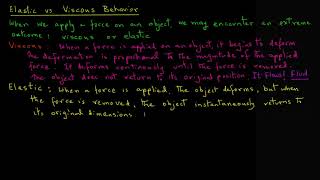 Elastic vs. Viscous Behavior
When we apply a force on an object, we may encounter an extreme
outcome: viscous or elastic
Viscous: When a force is applied on an object, it begins to deform
The deformation is proportional to the magnitude of the applied
force. It deforms continuously until the force is removed.
The object does not return to its original position. It Flows! Fluid
Elastic: When a force is applied, the object deforms, but when
the force is removed, the object instantaneously returns to
its original dimensions.